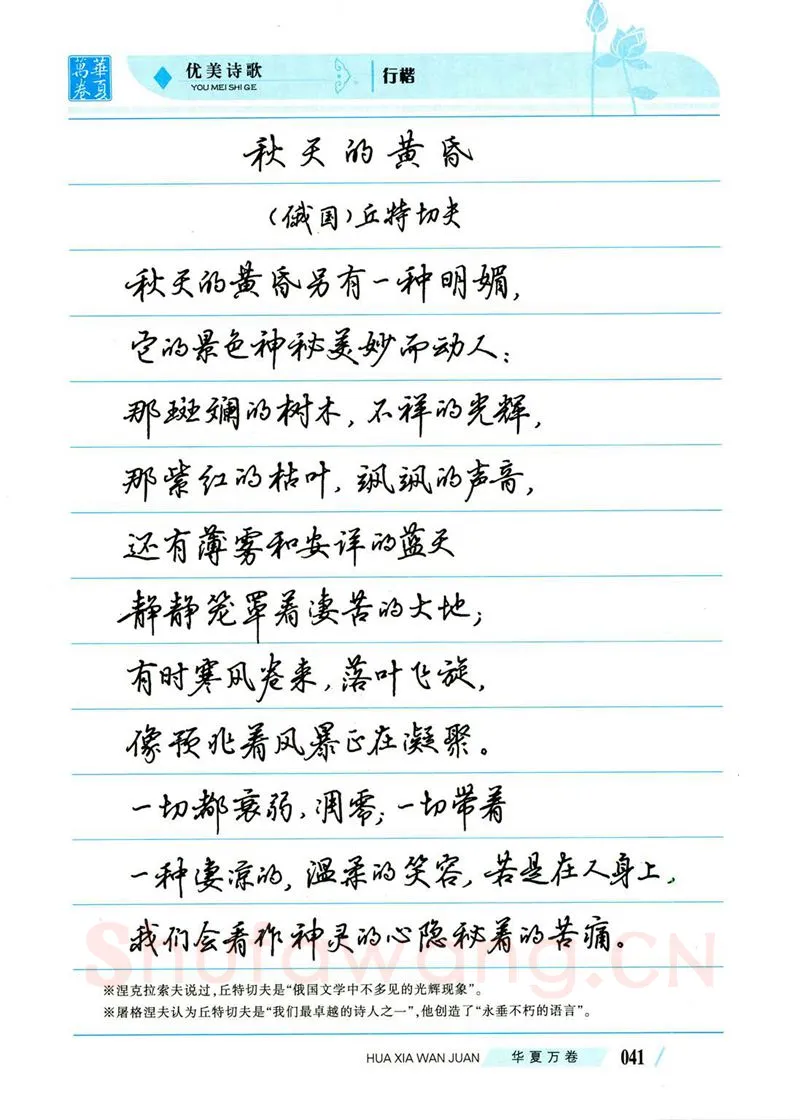 華夏
萬卷
优美诗歌
YOU MEI SHI GE
行楷
秋天的黄昏
(俄国)丘特切夫
秋天的黄昏另有一种明媚，
它的景色神秘美妙而动人：
那斑斓的树木，不祥的光辉，
那紫红的枯叶，飒飒的声音，
还有薄雾和安详的蓝天
静静笼罩着凄苦的大地；
有时寒风卷来，落叶飞旋，
像预兆着风暴正在凝聚。
一切都衰弱，凋零；一切带着
一种凄凉的，温柔的笑容，若是在人身上，
我们会看作神灵的心隐秘着的苦痛。
Shufawang.CN
※涅克拉索夫说过，丘特切夫是“俄国文学中不多见的光辉现象”。
※屠格涅夫认为丘特切夫是“我们最卓越的诗人之一”，他创造了“永垂不朽的语言”。
HUA XIA WAN JUAN
华夏万卷
041